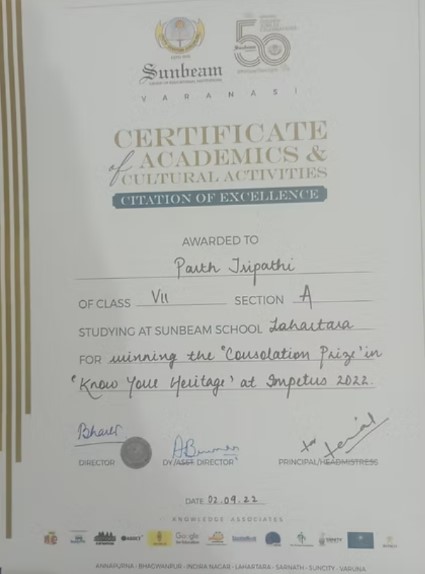 50
Sunbeam
VARANASI
CERTIFICATE
of ACADEMICS &
CULTURAL ACTIVITIES
CITATION OF EXCELLENCE
AWARDED TO
Parth Tripathi
OF CLASS VII SECTION A
STUDYING AT SUNBEAM SCHOOL Lahartara
FOR winning the 'Consolation Prize' in
'Know Your Heritage' at Impetus 2022.
DIRECTOR DY/ASST DIRECTOR PRINCIPAL/HEADMISTRESS
DATE 02.09.22
KNOWLEDGE ASSOCIATES
ANNAPURNA - BHAGWANPUR - INDIRA NAGAR - LAHARTARA - SARNATH - SUNCITY - VARUNA